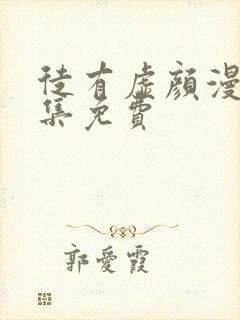 徒有虛顏漫
集免費
郭愛霞